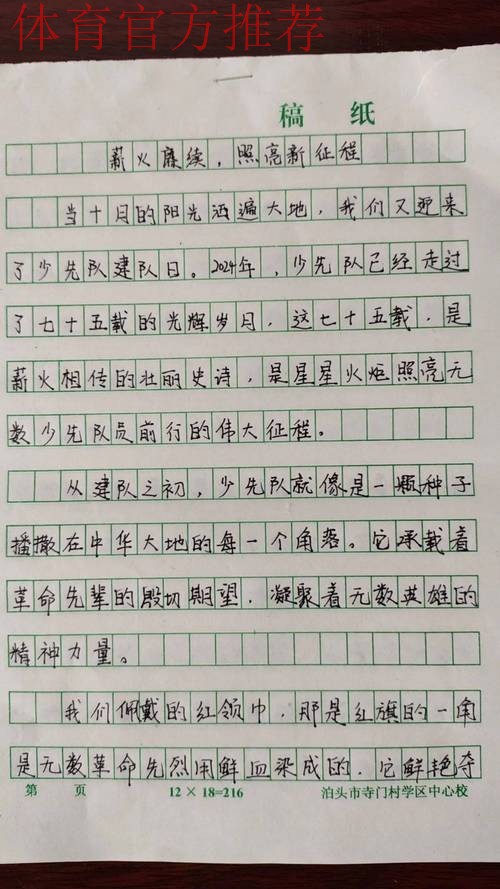 体育官方推荐
稿 纸
薪火赓续，照亮新征程
当十月的阳光洒遍大地，我们又迎来
了少先队建队日。2024年，少先队已经走过
了七十五载的光辉岁月，这七十五载，是
薪火相传的壮丽史诗，是星星火炬照亮无
数少先队员前行的伟大征程。
从建队之初，少先队就像是一颗种子
播撒在中华大地的每一个角落。它承载着
革命先辈的殷切期望，凝聚着无数英雄的
精神力量。
我们佩戴的红领巾，那是红旗的一角
是无数革命先烈用鲜血染成的，它鲜艳夺
第 页 12×18=216 泊头市寺门村学区中心校